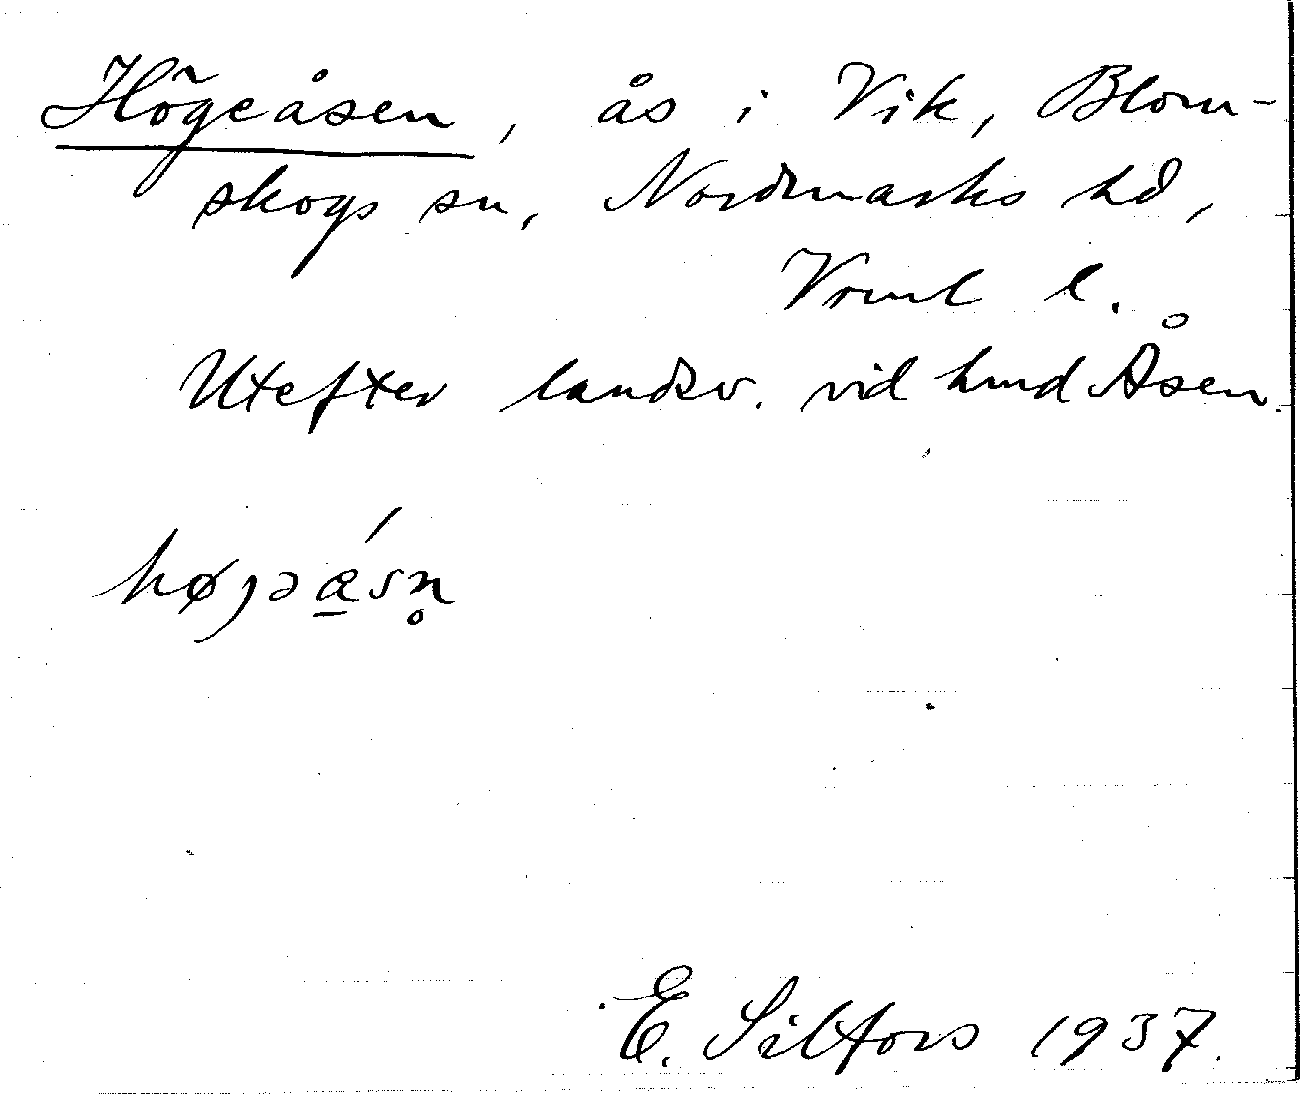 Högeåsen, ås i Vik, Blom-
skogs sn, Nordmarks hd,
Vrml l.
Utefter landsv. vid hmd Åsen.
E. Silfors 1937.